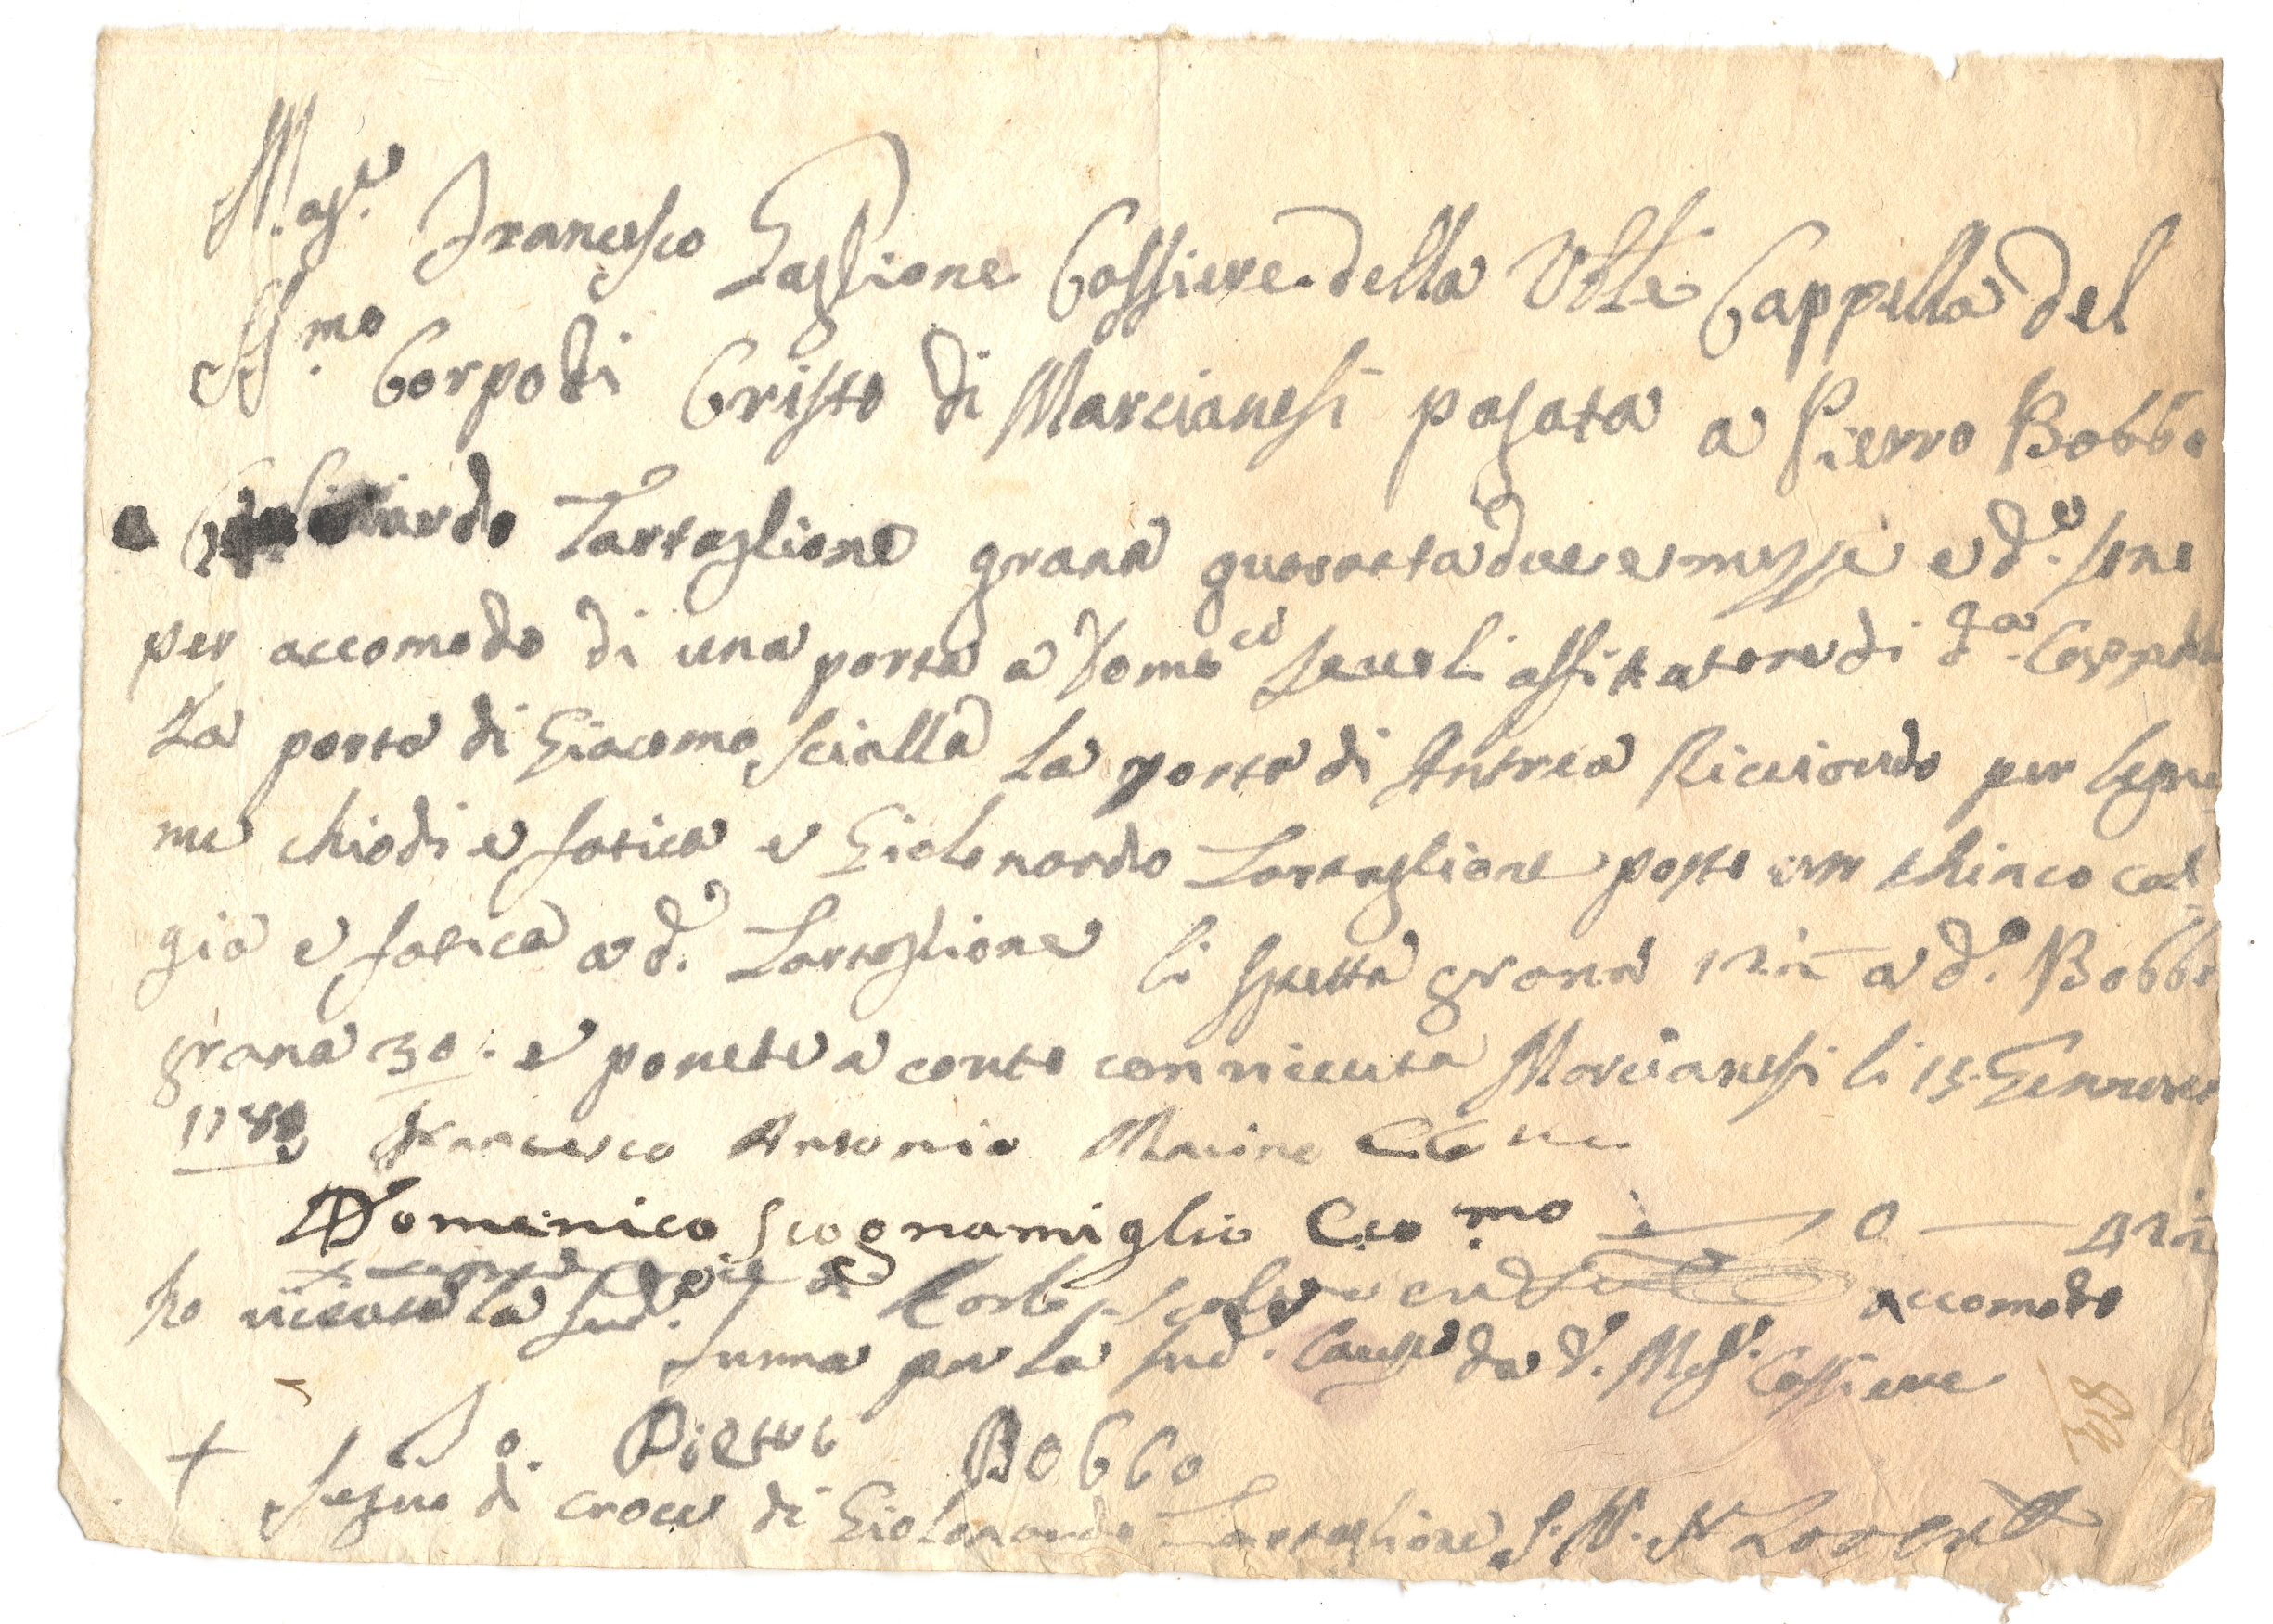 Mag.co Francesco Taglione Cassiere della Ven.le Cappella del
SS.mo Corpo di Cristo di Marcianesi pagata a Pierro Bobbo
e Tartaglione grana quarantadue e mezze e d.e sono
per accomodo di una porta a Dome.co affittatore di d.a Cappella
La porta di Giacomo Scialla La porta di Antrea Ricciardo per legna
me chiodi e fatica e Giolonardo Tartaglione posto un chinco cal
gia e fatica a d.o Tartaglione li spetta grana 12½ a d.o Bobbo
grana 30. e ponete a conto con riceuta Marcianesi li 15. Gennaro
Francesco Antonio Marino
Domenico Scognamiglio Eco.mo 0 — 42½
ho riceuto la sud.a accomodo
summa per la sud.a causa da d.o Mag.co Cassiere
Io. Pietro Bobbo
+ Segno di croce di Giolonardo Tartaglione